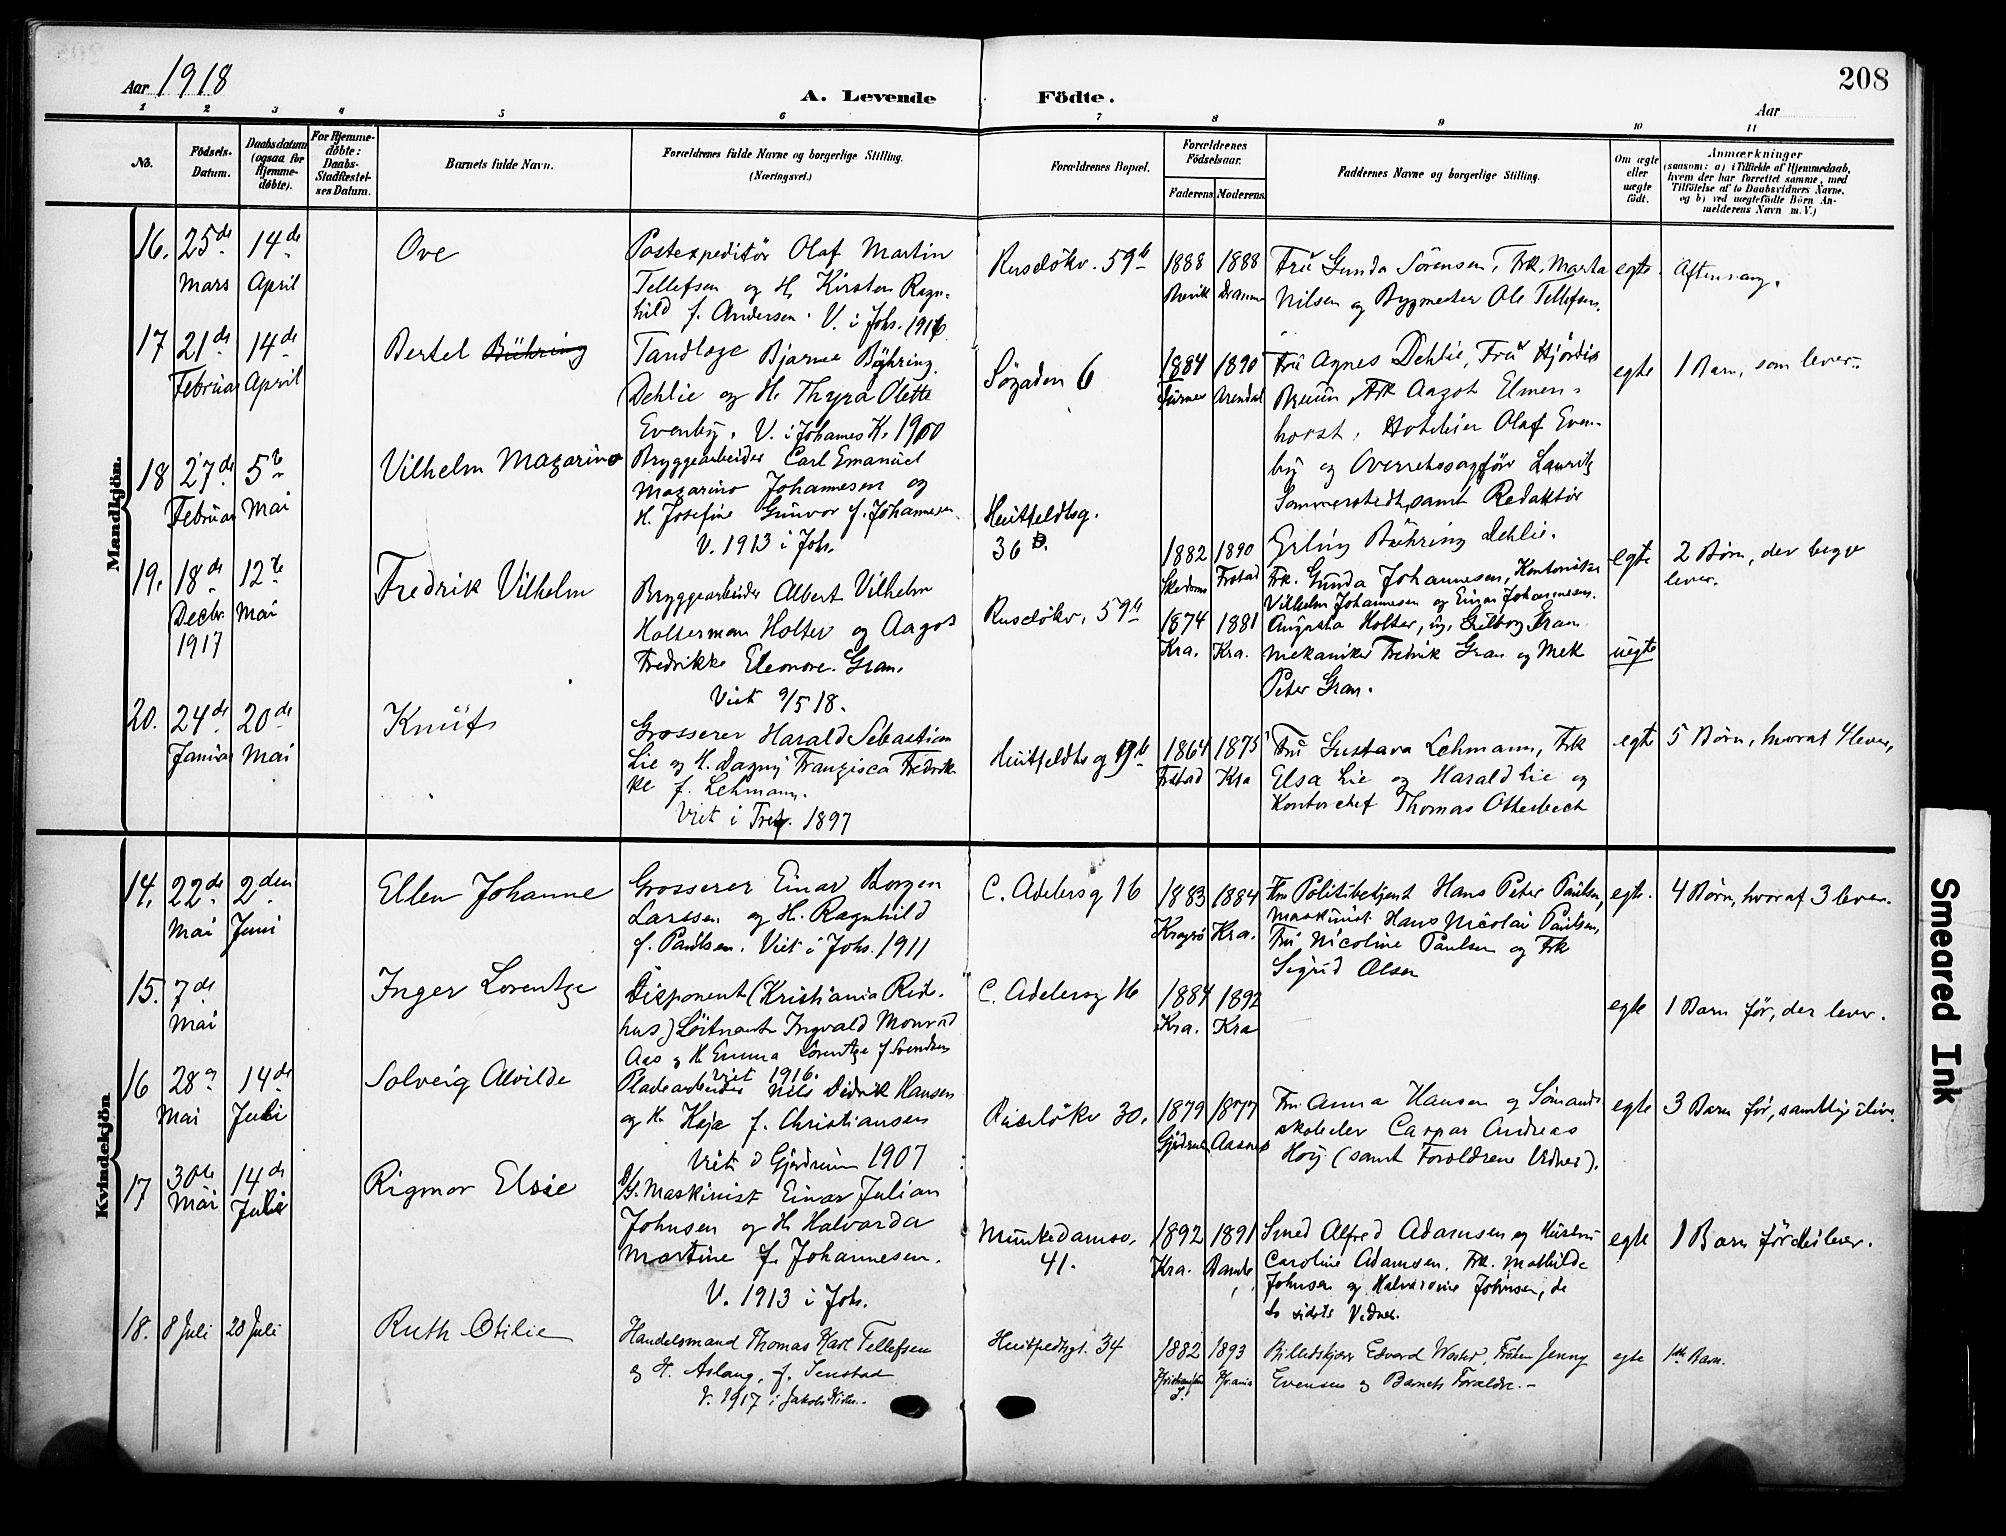 208
Aar 1918
A. Levende Födte.
Aar
1 2 3 4 5 6 7 8 9 10 11
No.
Födsels-
Datum.
Daabsdatum
(ogsaa for
Hjemme-
döbte).
For Hjemme-
döbte:
Daabs-
Stadfæstel-
ses Datum.
Barnets fulde Navn.
Forældrenes fulde Navne og borgerlige Stilling.
(Næringsvei.)
Forældrenes Bopæl.
Forældrenes
Födselsaar.
Faderens Moderens
Faddernes Navne og borgerlige Stilling.
Om ægte
eller
uægte
födt.
Anmærkninger
(saasom: a) i Tilfælde af Hjemmedaab,
hvem der har forrettet samme, med
Tilföielse af to Daabsvidners Navne,
og b) ved uægtefödte Börn An-
melderens Navn m. V.)
Mandkjön.
16. 25de Mars
14de April
Ove
Postexpeditör Olaf Martin
Tellefsen og H. Kirsten Ragn-
hild f. Andersen. V. i Johs. 1916
Ruselökv. 59b
1888 1888
Fru Gunda Sörensen, Frk. Marta
Nilsen og Bygmester Ole Tellefsen.
egte.
Aftensang.
17 21de Februar
14de April
Bertel Bühring
Tandlæge Bjarne Bühring
Dehlie og H. Thyra Olette
Evenby. V. i Johannes K. 1900
Sögaden 6
1884 1890
Arendal
Fru Agnes Dehlie, Fru Hjördis
Bruun, Frk Aagot Elmen-
horst, Hotelier Olaf Even-
by og Overretssagförer Lauritz
Sommerstedt, samt Redaktör
Erling Bühring Dehlie.
egte
1 Barn, som lever.
18 27de Februar
5te Mai
Vilhelm Mazarino
Bryggearbeider Carl Emanuel
Mazarino Johannesen og
H. Josefine Gunvor f. Johannesen
V. 1913 i Johs.
Huitfeldtsg.
36 B.
1882 1890
Frstad
Frk. Gunda Johannesen, Kontorist
Vilhelm Johannesen og Einar Johannesen.
egte
2 Börn, der begge
lever.
19. 18de Decbr. 1917
12te Mai
Fredrik Vilhelm
Bryggearbeider Albert Vilhelm
Holterman Holter og Aagot
Fredrikke Eleonore Gran.
Viet 9/5 18.
Ruselökv. 59a
1874 1881
Kra. Kra.
Augusta Holter, Gran
Mekaniker Fredrik Gran og Mek
Peter Gran.
uegte
20. 24de Januar
20de Mai
Knut
Grosserer Harald Sebastian
Lie og H. Dagny Franzisca Fredrik-
ke f. Lehmann.
Viet i Tref. 1897
Huitfeldtsg 9b
1864 1875
Frstad Kra
Fru Gustava Lehmann, Frk
Elsa Lie og Harald Lie og
Kontorchef Thomas Otterbech
egte
5 Börn, hvoraf 4 lever.
Kvindekjön
14. 22de Mai
2den Juni
Ellen Johanne
Grosserer Einar Borgen
Larssen og H. Ragnhild
f. Paulsen. Viet i Johs. 1911
C. Adelersg 16
1883 1884
Kragerö Kra.
Fru Politibetjent Hans Peter Paulsen,
Maskinist Hans Nicolai Paulsen,
Fru Nicoline Paulsen og Frk
Sigrid Olsen
egte.
4 Börn, hvoraf 3 lever.
15. 7de Mai
Inger Lorentze
Disponent (Kristiania Ride-
hus) Löitnant Ingvald Monrad
Aas og H. Emma Lorentze f Svendsen
Viet 1916.
C. Adelersg 16
1884 1892
Kra. Kra
egte
1 Barn för, der lever.
16 28 Mai
14de Juli
Solveig Alvilde
Pladearbeider Nils Didrik Hansen
og H. Kaja f. Christiansen
Viet i Gjerdrum 1907
Ruselökv 30.
1879 1877
Gjerdrum Aasnes
Fru Anna Hansen og Sömands-
skoleelev Caspar Andreas
Höy (samt Forældrene Vidner).
egte
3 Barn för, samtlige ilive
17 30te Mai
14de Juli
Rigmor Elsie
Maskinist Einar Julian
Johnsen og H. Halvarda
Martine f. Johannesen.
V. 1913 i Johs.
Munkedamsv.
41.
1892 1891
Kra. Bamle
Smed Alfred Adamsen og Hustru
Caroline Adamsen, Frk. Mathilde
Johnsen og Halvardine Johnsen, de
to sidste Vidner.
egte
1 Barn för der lever.
18. 8 Juli
28 Juli
Ruth Otilie
Handelsmand Thomas Karl Tellefsen
og H. Aslaug, f. Senstad
V. 1917 i Jakobs Kirke.
Huitfeldtsgt. 34
1882 1893
Kristiansund Krania
Billedskjærer Edvard Wester, Fröken Jenny
Evensen og Barnets Forældre.
egte
1ste Barn.
Smeared Ink